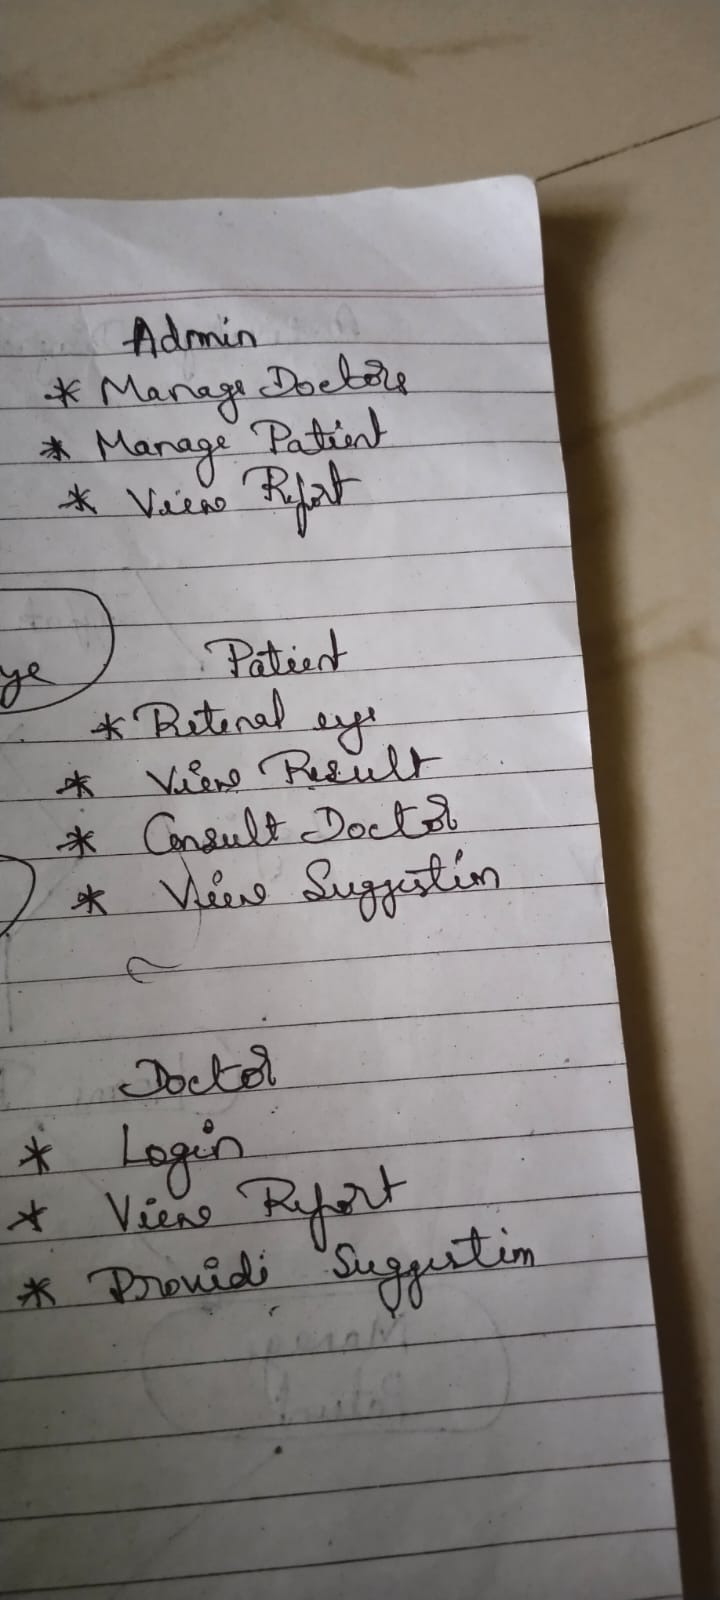 Admin
* Manage Doctors
* Manage Patient
* View Report
ye
Patient
* Retenal eye
* View Result
* Consult Doctor
* View Suggestion
Doctor
* Login
* View Report
* Providi Suggestion